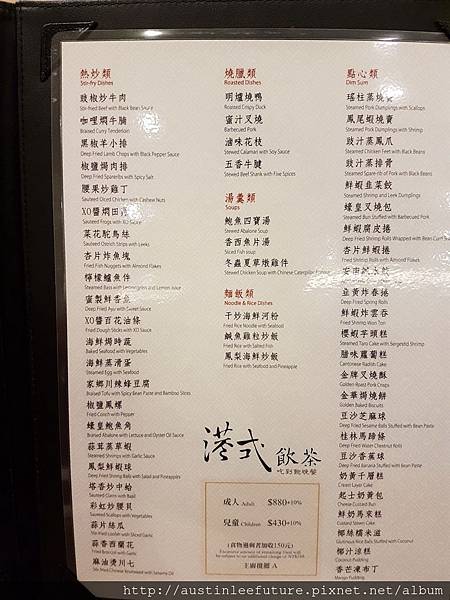 熱炒類
Stir-fry Dishes
豉椒炒牛肉
Stir-fried Beef with Black Bean Sauce
咖哩燜牛腩
Braised Curry Tenderloin
黑椒羊小排
Deep Fried Lamb Chops with Black Pepper Sauce
椒鹽焗肉排
Deep Fried Spareribs with Spicy Salt
腰果炒雞丁
Sauteed Diced Chicken with Cashew Nuts
XO醬燜田
Sauteed Frog with XO Sauce
菜花鴕鳥絲
Sauteed Ostrich Strips with Leeks
杏片炸魚塊
Fried Fish Nuggets with Almond Flakes
檸檬鱸魚件
Steamed Bass with Lemongrass and Lemon Juice
蜜製鮮香魚
Deep Fried Ayu with Sweet Sauce
XO醬百花油條
Fried Dough Sticks with XO Sauce
海鮮焗時蔬
Baked Seafood with Vegetables
海鮮蒸滑蛋
Steamed Egg with Seafood
家鄉川辣蜂豆腐
Braised Tofu with Spicy Bean Paste and Bamboo Slices
椒鹽鳳螺
Fried Conch with Pepper
蠔皇鮑魚角
Braised Abalone with Lettuce and Oyster Oil Sauce
蒜茸蒸草蝦
Steamed Shrimps with Garlic Sauce
鳳梨鮮蝦球
Deep Fried Shrimp Balls with Salad and Pineapples
塔香炒中蛤
Sauteed Clams with Basil
彩虹炒腰貝
Sauteed Scallops with Vegetables
蒜片絲瓜
Stir-fried Loofah with Sliced Garlic
蒜香西蘭花
Fried Broccoli with Garlic
麻油燙川七
燒臘類
Roasted Dishes
明爐燒鴨
Roasted Crispy Duck
蜜汁叉燒
Barbecued Pork
滷味花枝
Stewed Calamari with Soy Sauce
五香牛腱
Stewed Beef Shank with Five Spices
湯羹類
Soups
鮑魚四寶湯
Stewed Abalone Soup
香西魚片湯
Sliced Fish soup
冬蟲夏草燉雞件
Stewed Chicken Soup with Chinese Caterpillar Fungus
麵飯類
Noodle & Rice Dishes
干炒海鮮河粉
Fried Rice Noodle with Seafood
鹹魚雞粒炒飯
Fried Rice with Salted Fish
鳳梨海鮮炒飯
Fried Rice with Seafood and Pineapple
點心類
Dim Sum
瑤柱蒸燒賣
Steamed Pork Dumplings with Scallops
鳳尾蝦燒賣
Steamed Pork Dumplings with Shrimp
豉汁蒸鳳爪
Steamed Chicken Feet with Black Beans
豉汁蒸排骨
Steamed Spare-rib of Pork with Black Beans
鮮蝦韭菜餃
Steamed Shrimp and Leek Dumplings
蠔皇叉燒包
Steamed Bun Stuffed with Barbecued Pork
鮮蝦腐皮捲
Deep Fried Shrimp Rolls Wrapped with Bean Curd
杏片鮮蝦捲
Fried Shrimp Rolls with Almond Flakes
韭黃炸春捲
Deep Fried Spring Rolls
鮮蝦炸雲吞
Fried Shrimp Won Ton
櫻蝦芋頭糕
Steamed Taro Cake with Sergestid Shrimp
臘味蘿蔔糕
Cantonese Radish Cake
金牌叉燒酥
Golden Roast Pork Crisps
金華焗燒餅
Golden Baked Biscuits
豆沙芝麻球
Deep Fried Sesame Balls Stuffed with Bean Paste
桂林馬蹄條
Deep Fried Water Chestnut Rolls
豆沙香蕉球
Deep Fried Banana Stuffed with Bean Paste
奶黃千層糕
Cream Layer Cake
起士奶黃包
Cheese Custard Bun
鮮奶馬來糕
Custard Steam Cake
椰絲糯米滋
Glutinous Rice Balls Stuffed with Coconut
椰汁涼糕
Coconut Pudding
香芒凍布丁
Mango Pudding
港式飲茶
吃到飽晚餐
成人 Adult $880+10%
兒童 Children $430+10%
(食物過剩者加收150元)
Excessive amount of remaining food will
be subject to an additional charge of NT$150
主廚推薦 A
http://austinleefuture.pixnet.net/album